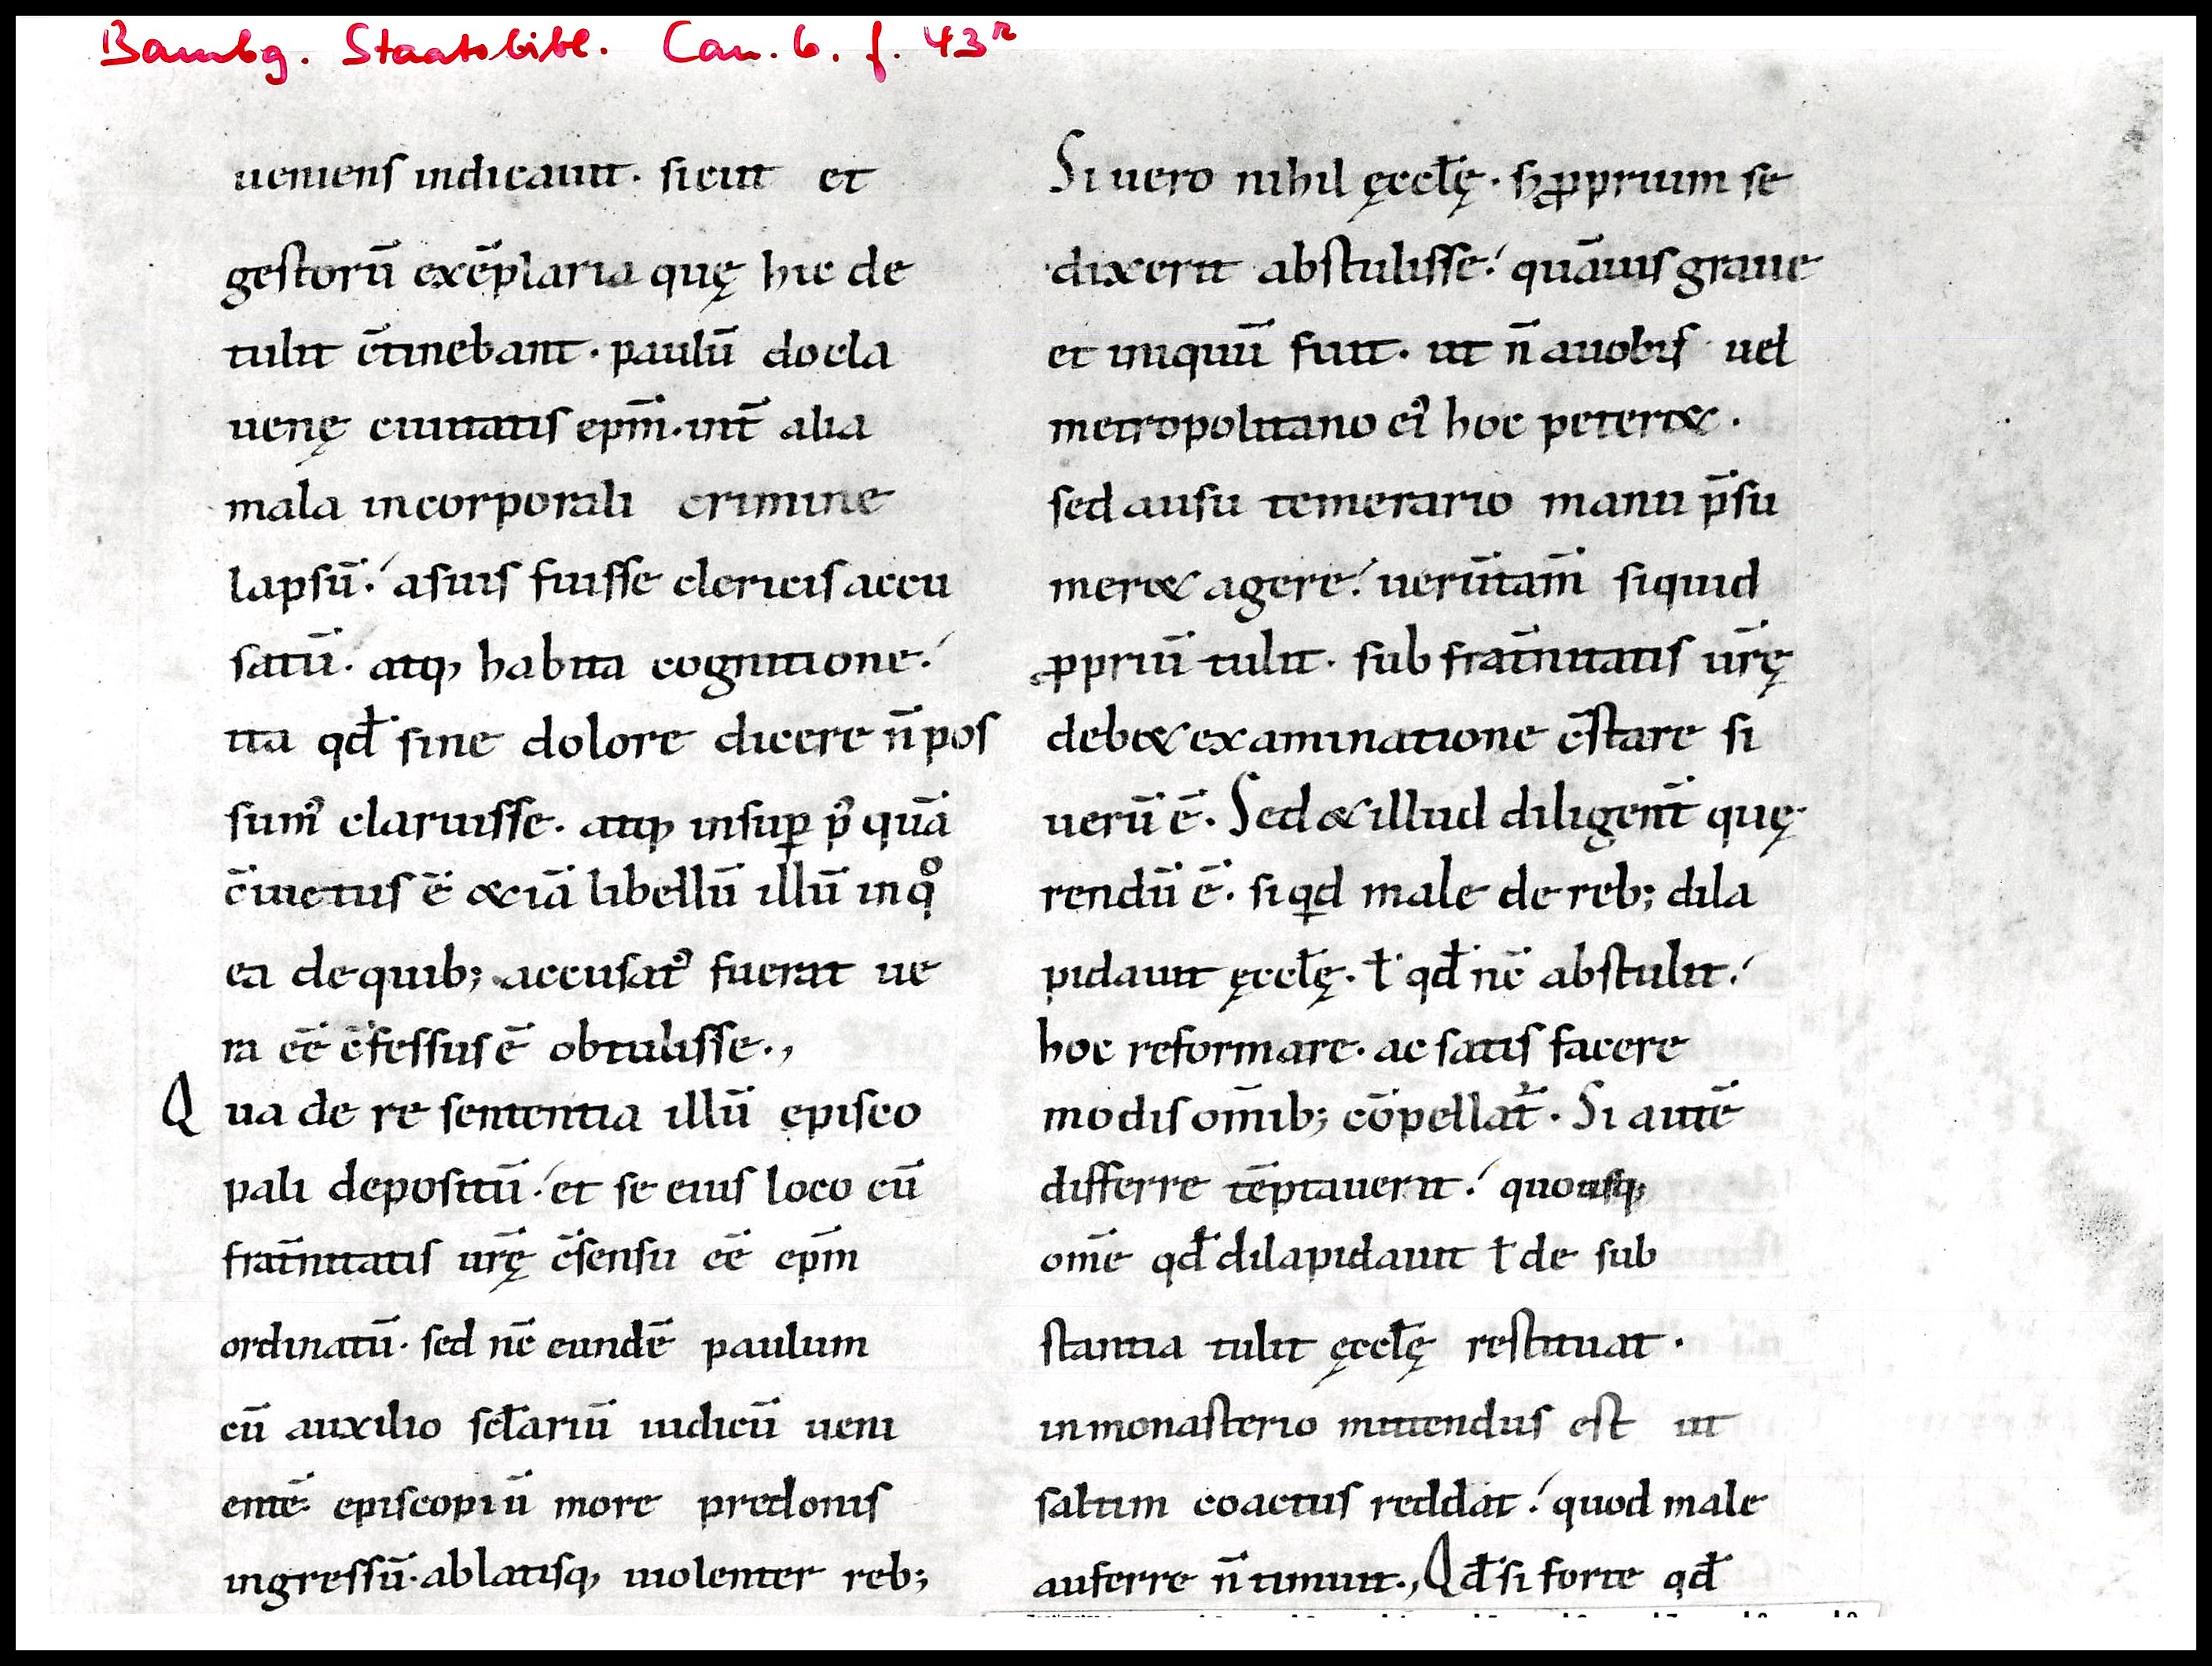 Bambg. Staatsbibl. Can. 6. f. 43r
ueniens indicauit. sicut et
gestorū exēplaria quę hic de
tulit c̄tinebant. paulū docla
uenę ciuitatis ep̄m. int̄ alia
mala incorporali crimine
lapsū. asuis fuisse clericis accu
satū. atq; habita cognitione.
ita qd̄ sine dolore dicere n̄ pos
sumꝰ claruisse. atq; insuꝑ pꝰ quā
c̄uictus ē &iā libellū illū inqͦ
ea dequib; accusatꝰ fuerat ue
ra eē c̄fessus ē obtulisse.,
Qua de re sententia illū episco
pali depositū. et se eius loco cū
frat̄nitatis ur̄ę c̄sensu eē ep̄m
ordinatū. sed nc̄ eundē paulum
cū auxilio scłariū iudicū ueni
entē. episcopiū more predonis
ingressū. ablatisq; uiolenter reb;
Si uero nihil ęccłę. sꝫ ꝓprium se
dixerit abstulisse. quāuis graue
et iniquū fuit. ut n̄ auobis uel
metropolitano eiꝰ hoc peter&.
sed ausu temerario manu p̄su
mer& agere. uerūtam̄ siquid
ꝓpriū tulit. sub frat̄nitatis ur̄ę
deb& examinatione c̄stare si
uerū ē. Sed & illud diligent̄ quę
rendū ē. si qd male de reb; dila
pidauit ęccłę. ł qd̄ nc̄ abstulit.
hoc reformare. ac satis facere
modis om̄ib; cōpellat᷑. Si autē
differre tēptauerit. quousq;
om̄e qd̄ dilapidauit ł de sub
stantia tulit ęccłę restituat.
inmonasterio mittendus est ut
saltim coactus reddat. quod male
auferre n̄ timuit., Qd̄ si forte qd̄